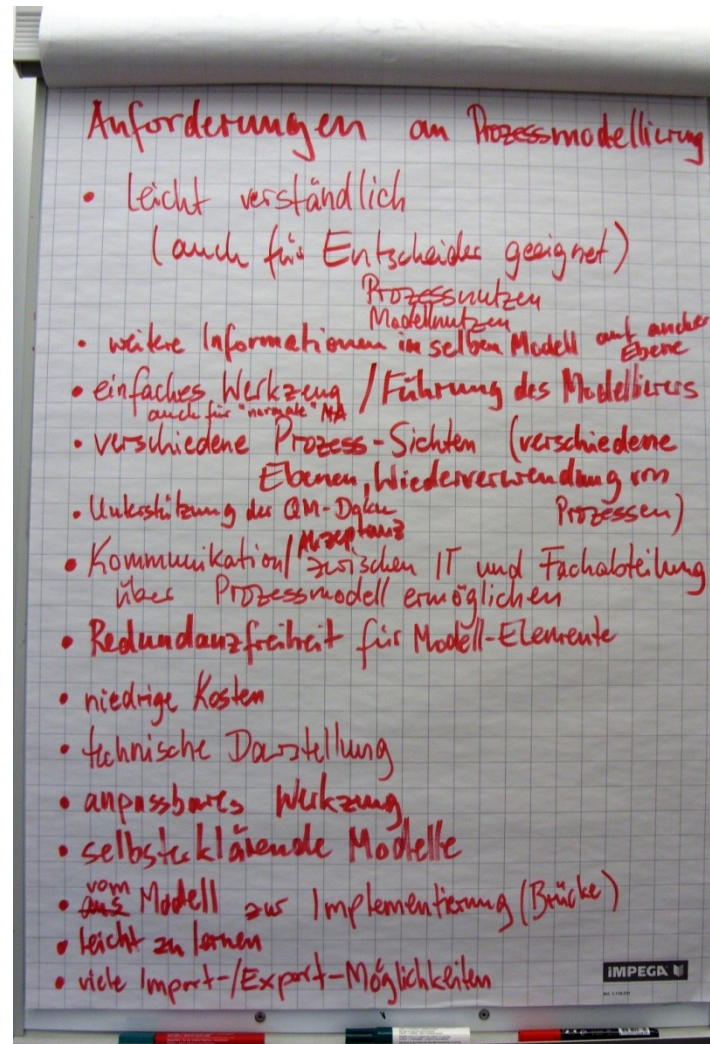 Anforderungen an Prozessmodellierung
• leicht verständlich
(auch für Entscheider geeignet)
Prozessnutzen
Modellnutzen
• weitere Informationen im selben Modell auf andrer
Ebene
• einfaches Werkzeug / Führung des Modellierers
auch für "normale" MA
• verschiedene Prozess-Sichten (verschiedene
Ebenen, Wiederverwendung von
Prozessen)
• Unterstützung der QM-Doku
Akzeptanz
• Kommunikation / zwischen IT und Fachabteilung
über Prozessmodell ermöglichen
• Redundanzfreiheit für Modell-Elemente
• niedrige Kosten
• technische Darstellung
• anpassbares Werkzeug
• selbsterklärende Modelle
vom
• aus Modell zur Implementierung (Brücke)
• leicht zu lernen
• viele Import-/Export-Möglichkeiten
IMPEGA